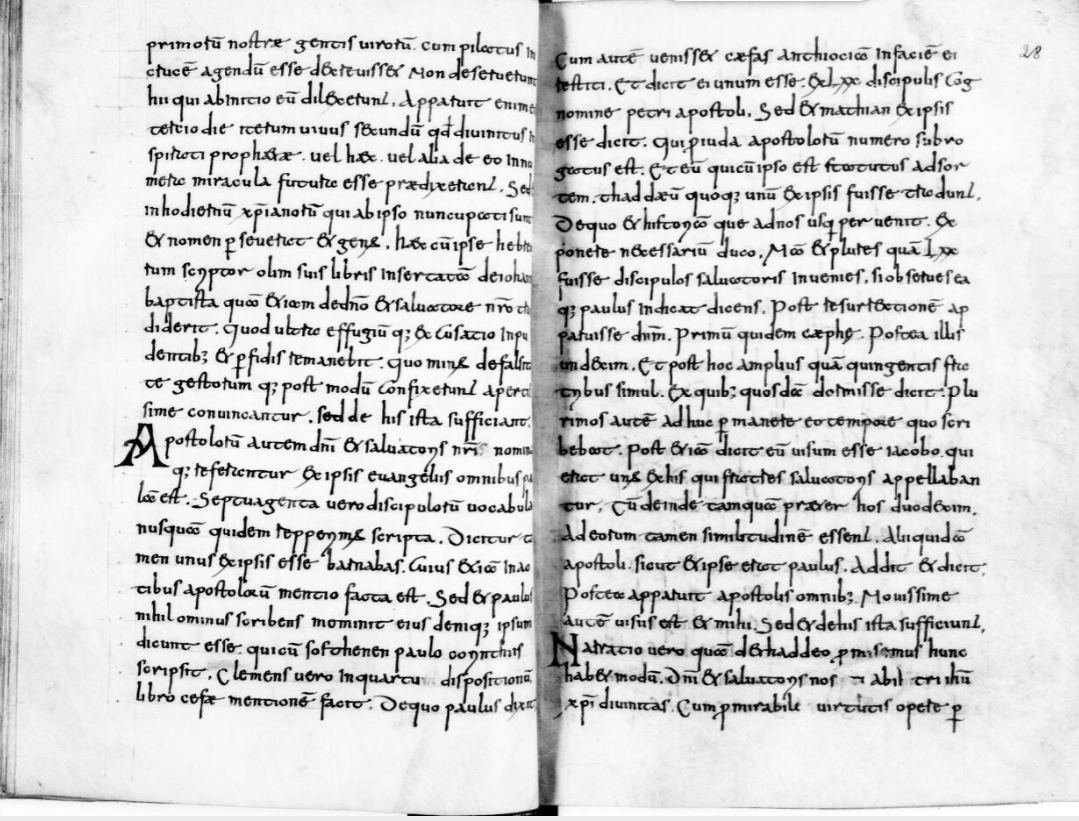 primorū nostræ gentis virorū. cum pilatus in
crucē agendū esse decrevisset Non deseruerunt
hii qui ab initio eū dilexerunt. Apparuit enim e
tertio die iterum vivus secundū qđ divinitus in
spirati prophetæ. vel hæc. vel alia de eo innu
mera miracula futura esse prædixerunt. Sed
in hodiernū xp̄ianorū qui ab ipso nuncupati sunt
& nomen p̱severat & genus. hæc cū ipse hebre
rum scriptor olim suis libris inserta de iohan
baptista quā etiam de dn̄o & salvatore nr̄o tra
diderit. quod ultra effugiū q; excusatio inpu
dentib; & p̱fidis remanebit. quo minus de falsita
te gestorum q; post modū confixerunt aperti
sime convincantur. sed de his ista sufficiant.
Apostolorū autem dn̄i & salvatoris nr̄i nomina
q; referentur ex ipsis evangeliis omnibus pa
lā est. Septuaginta vero discipulorū vocabula
nusquā quidem repperimus scripta. Dicitur ta
men unus ex ipsis esse barnabas. Cuius etiā in ac
tibus apostolorū mentio facta est. Sed & paulus
nihilominus scribens meminit eius deniq; ipsum
dicunt esse. qui cū sosthenen paulo corinthiis
scripsit. Clemens vero in quarto dispositionū
libro cefæ mentionē facit. De quo paulus dixit
28
Cum autē venisset cæfas anthiociā in faciē ei
restiti. Et dicit ei unum esse. ex lxx discipulis Cog
nomine petri apostoli. Sed & mathian ex ipsis
esse dicit. Qui p̱ iuda apostolorū numero subro
gatus est. Et eū qui cū ipso est statutus ad sor
tem. thaddæū quoq; unū ex ipsis fuisse tradunt.
De quo & historiā que ad nos usq; pervenit. Ex
ponere necessariū duco. Nā & plures quā lxx
fuisse discipulos salvatoris invenies. si observes ea
q; paulus indicat dicens. Post resurrectionē ap
paruisse dn̄m. Primū quidem cæphę. Postea illis
undecim. Et post hoc amplius quā quingentis fra
tribus simul. Ex quib; quosdā dormisse dicit. Plu
rimos autē ad huc p̱manere eo tempore quo scri
bebat. Post etiā dicit eū visum esse iacobo. qui
erat unus ex his qui fratres salvatoris appellaban
tur. Cū deinde tamquā præter hos duodecim.
Ad eorum tamen similitudinē essent. Aliqui dā
apostoli. sicut & ipse erat paulus. Addit & dicit.
Postea apparuit apostolis omnib;. Novissime
autē visus est & mihi. Sed & de his ista sufficiunt.
Narratio vero quā de thaddeo p̱misimus hunc
habet modū. Dn̄i & salvatoris nos tri ihū
xp̄i divinitas. Cum p̱ mirabile virtutis opere p̱